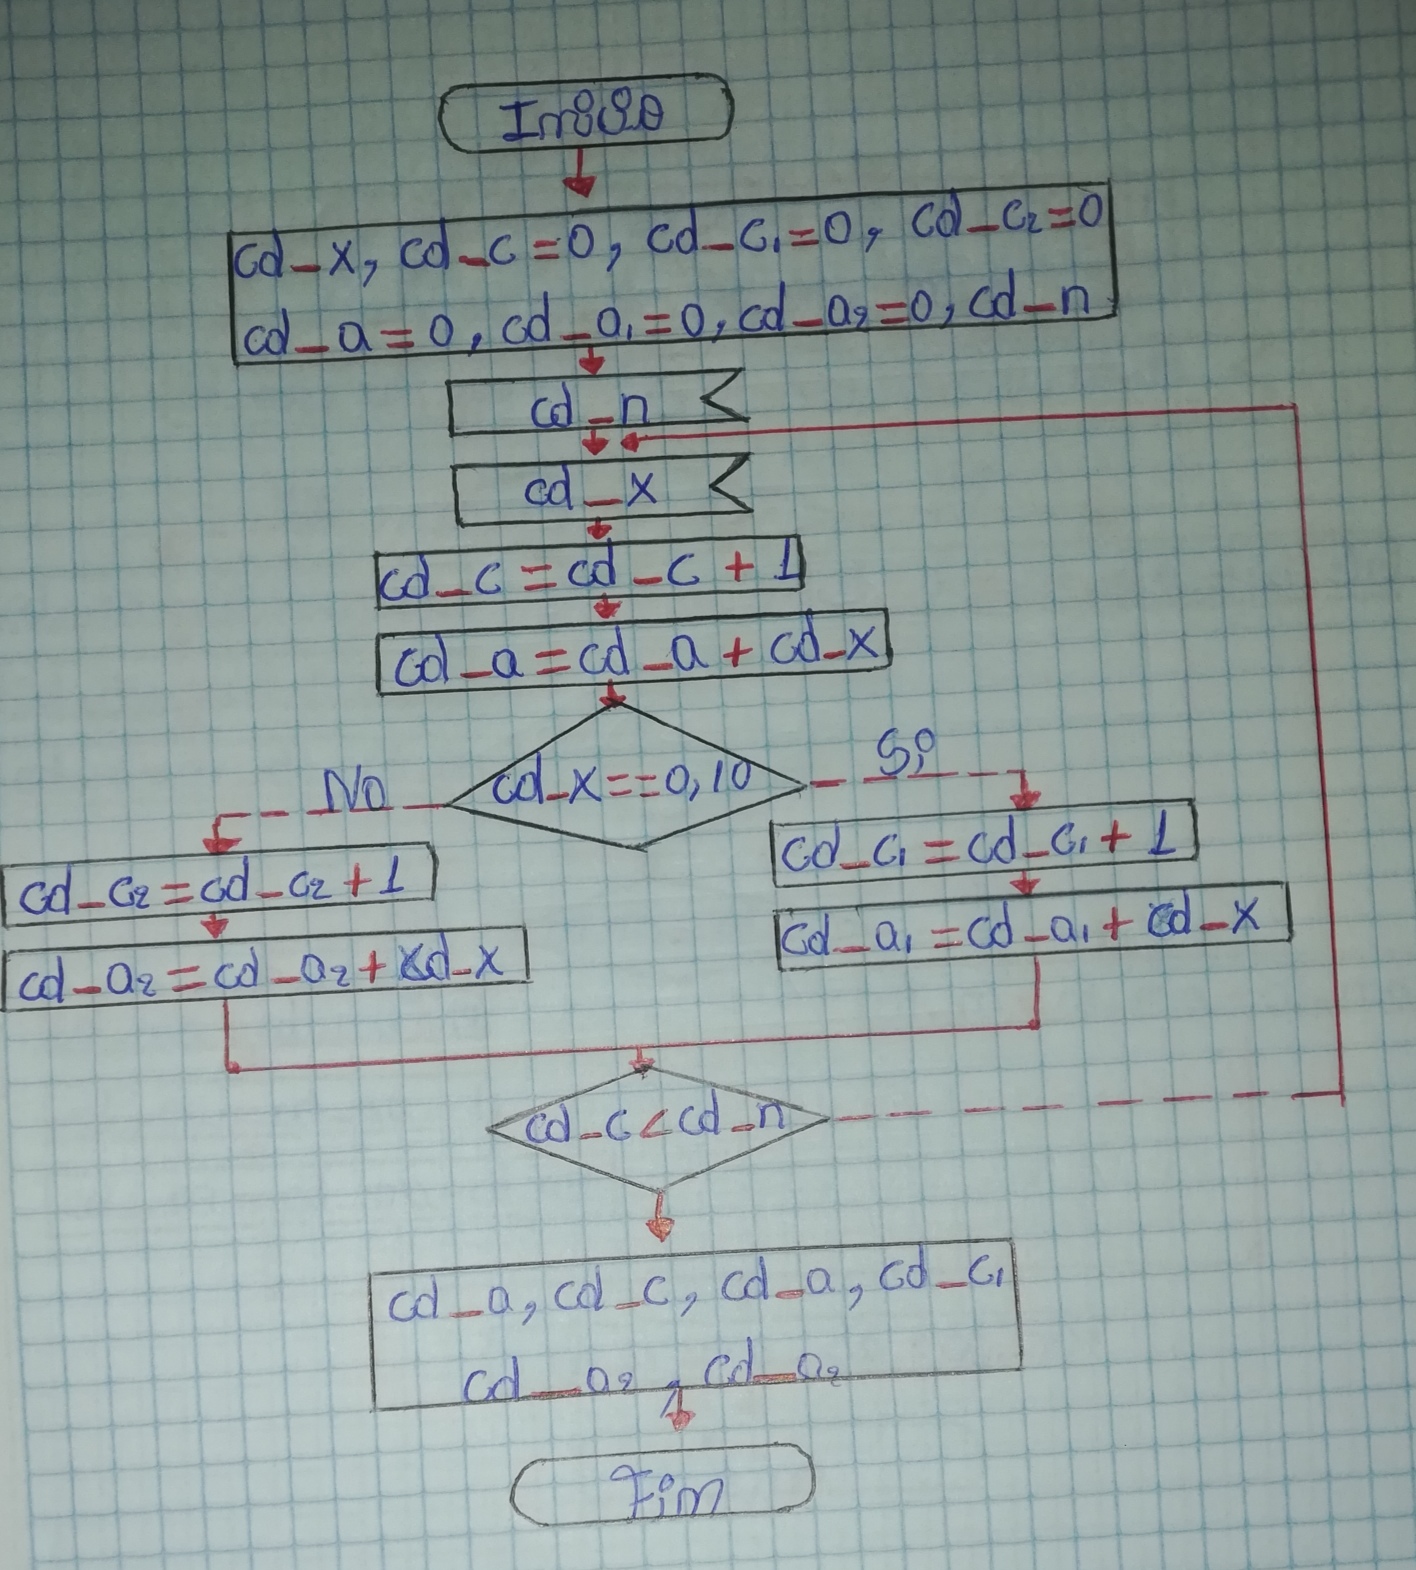 Inicio
cd_x, cd_c=0, cd_c₁=0, cd_c₂=0
cd_a=0, cd_a₁=0, cd_a₂=0, cd_n
cd_n
cd_x
cd_c=cd_c+1
cd_a=cd_a+cd_x
cd_x==0,10
No
Si
cd_c₂=cd_c₂+1
cd_a₂=cd_a₂+cd_x
cd_c₁=cd_c₁+1
cd_a₁=cd_a₁+cd_x
cd_c<cd_n
cd_a, cd_c, cd_a, cd_c₁
cd_a₂, cd_a₂
Fim